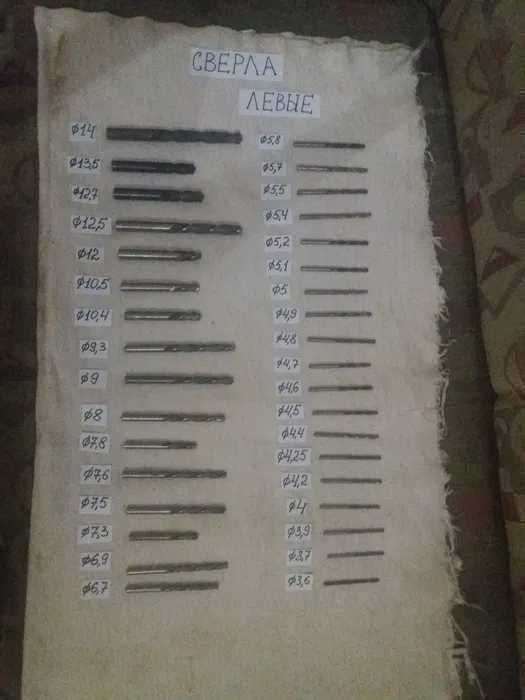 СВЕРЛА
ЛЕВЫЕ
φ14
φ13,5
φ12,7
φ12,5
φ12
φ10,5
φ10,4
φ9,3
φ9
φ8
φ7,8
φ7,6
φ7,5
φ7,3
φ6,9
φ6,7
φ5,8
φ5,7
φ5,5
φ5,4
φ5,2
φ5,1
φ5
φ4,9
φ4,8
φ4,7
φ4,6
φ4,5
φ4,4
φ4,25
φ4,2
φ4
φ3,9
φ3,7
φ3,6